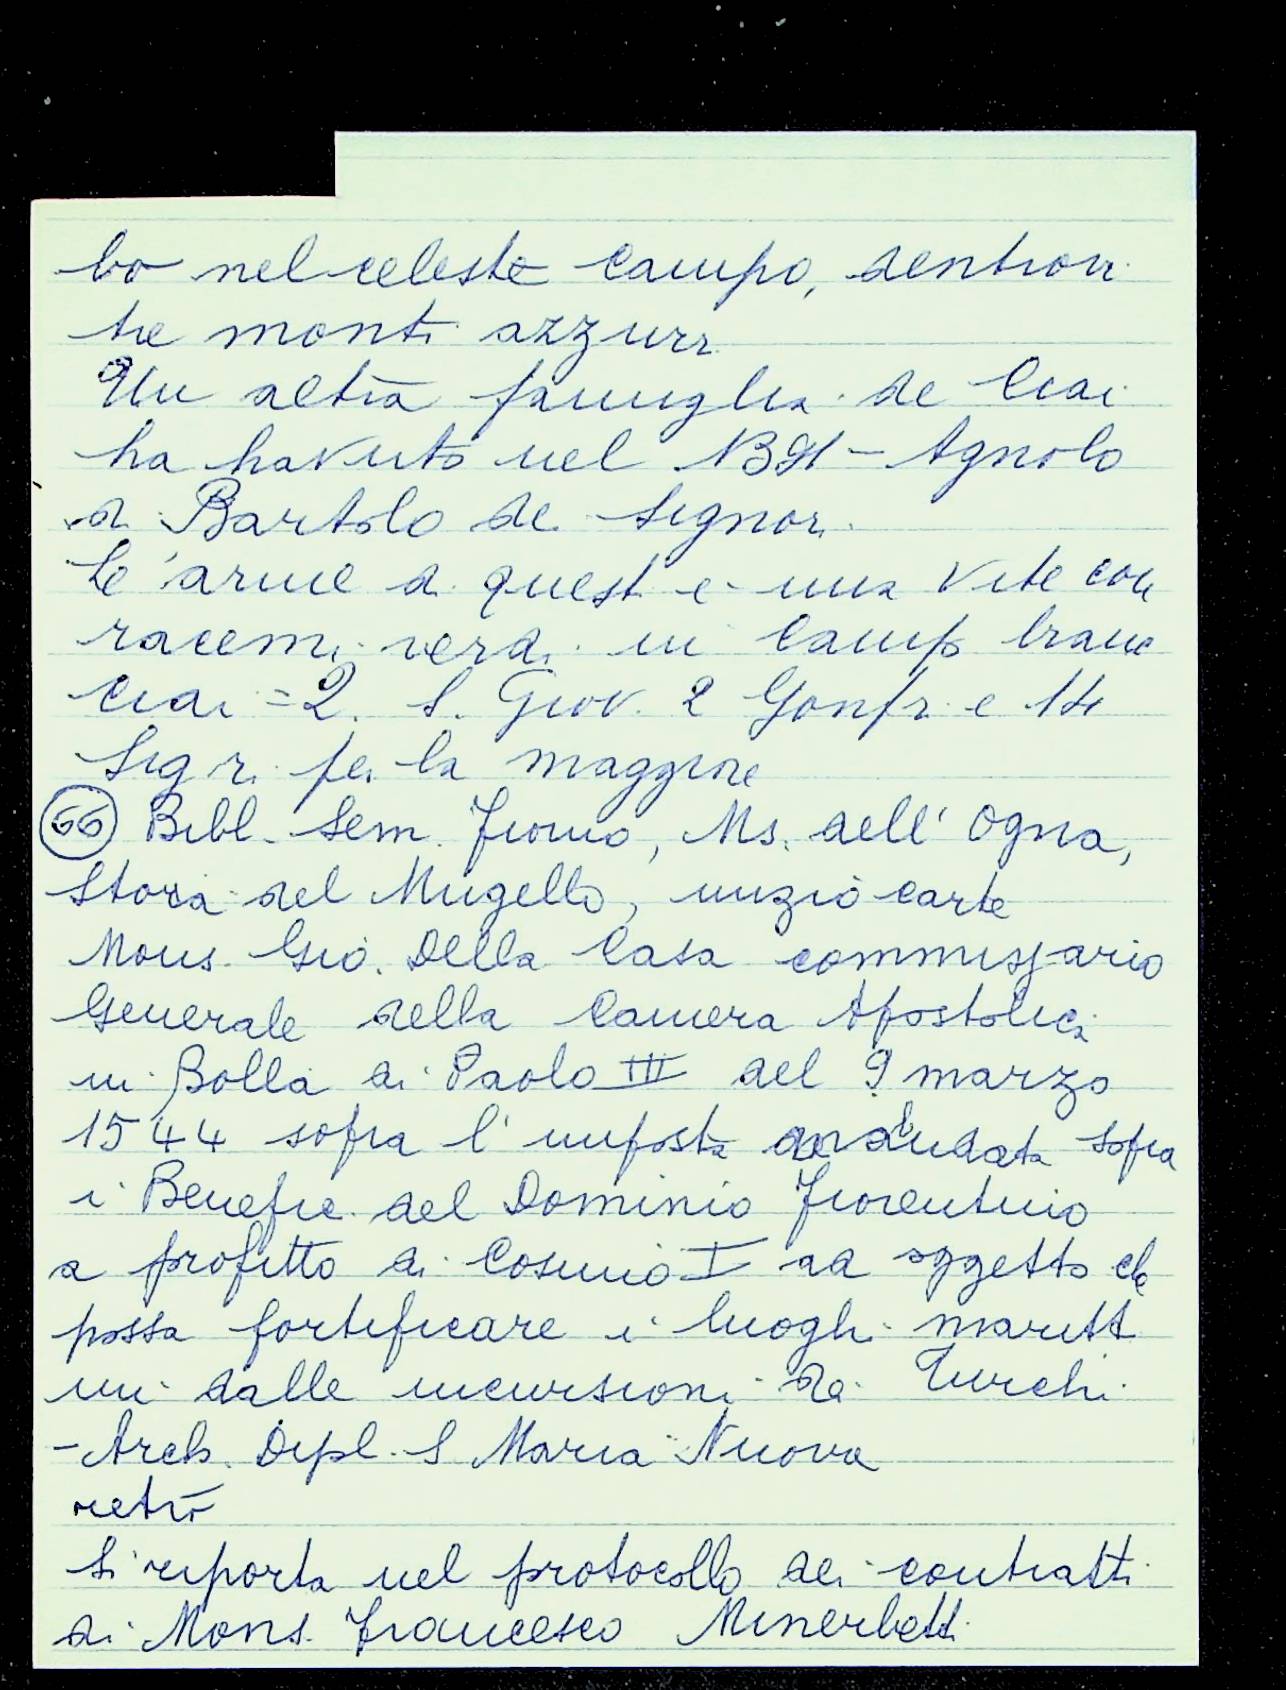 bo nel celeste campo, dentrovi
tre monti azzurri
Un altra famiglia de Ciai
ha havuto nel 1391 - Agnolo
di Bartolo de Signori
Le arme di questi e una vite con
racemi verdi in campo bianc
Ciai = 2. S. Giov. 2 Gonfr. e 14
Sigri. per la maggiore
66 Bibl. Sem. Fiorno, Ms. dell' Ogna,
Storia del Mugello, inizio carte
Mons. Gio. Della Casa commissario
Generale della Camera Apostolica
in Bolla di Paolo III del 9 marzo
1544 sopra l' imposta sopra
i Benefic. del Dominio Fiorentino
a profitto di Cosimo I ad oggetto che
possa fortificare i luoghi maritt
imi dalle incursioni de Turchi
- Arch. Dipl. S Maria Nuova
retro
Si riporta nel protocollo dei contratti
di Mons. Francesco Minerbetti